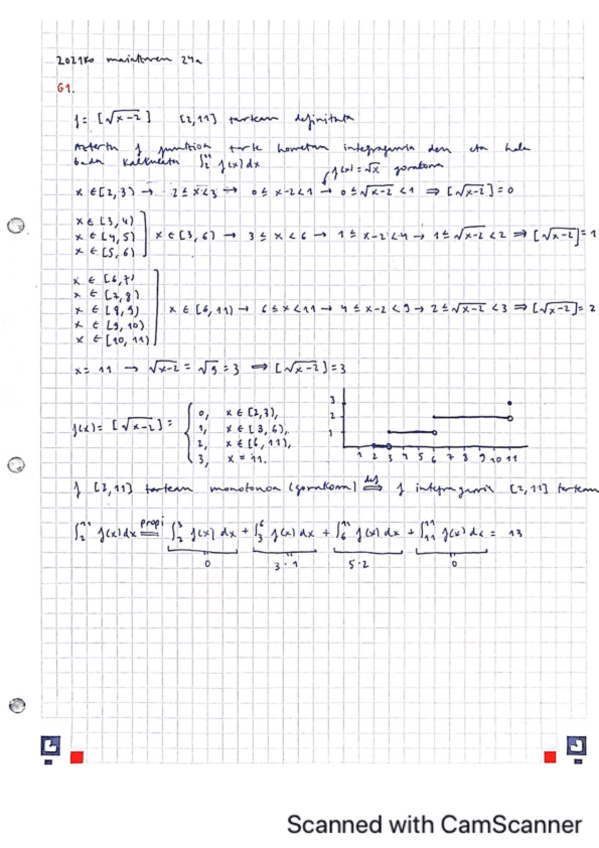 2021ko maiatzaren 24a
G1.
f = [√x-2] [2,11] tartean definituta
Aztertu f funtzioa tarte horretan integragarria den eta hala
bada kalkulatu ∫₂¹¹ f(x) dx
f(x) = √x gorakorra
x ∈ [2,3) → 2 ≤ x < 3 → 0 ≤ x-2 < 1 → 0 ≤ √x-2 < 1 ⇒ [√x-2] = 0
x ∈ [3, 4)
x ∈ [4, 5)
x ∈ [5, 6)
x ∈ [3, 6) → 3 ≤ x < 6 → 1 ≤ x-2 < 4 → 1 ≤ √x-2 < 2 ⇒ [√x-2] = 1
x ∈ [6, 7)
x ∈ [7, 8)
x ∈ [8, 9)
x ∈ [9, 10)
x ∈ [10, 11)
x ∈ [6, 11) → 6 ≤ x < 11 → 4 ≤ x-2 < 9 → 2 ≤ √x-2 < 3 ⇒ [√x-2] = 2
x = 11 → √x-2 = √9 = 3 ⇒ [√x-2] = 3
f(x) = [√x-2] =
0, x ∈ [2,3),
1, x ∈ [3, 6),
2, x ∈ [6, 11),
3, x = 11.
3
2
1
1 2 3 4 5 6 7 8 9 10 11
f [2,11] tartean monotonoa (gorakorra) def ⇒ f integragarria [2,11] tartean
∫₂¹¹ f(x) dx propi = ∫₂³ f(x) dx + ∫₃⁶ f(x) dx + ∫₆¹¹ f(x) dx + ∫₁₁¹¹ f(x) dx = 13
0 3·1 5·2 0
Scanned with CamScanner